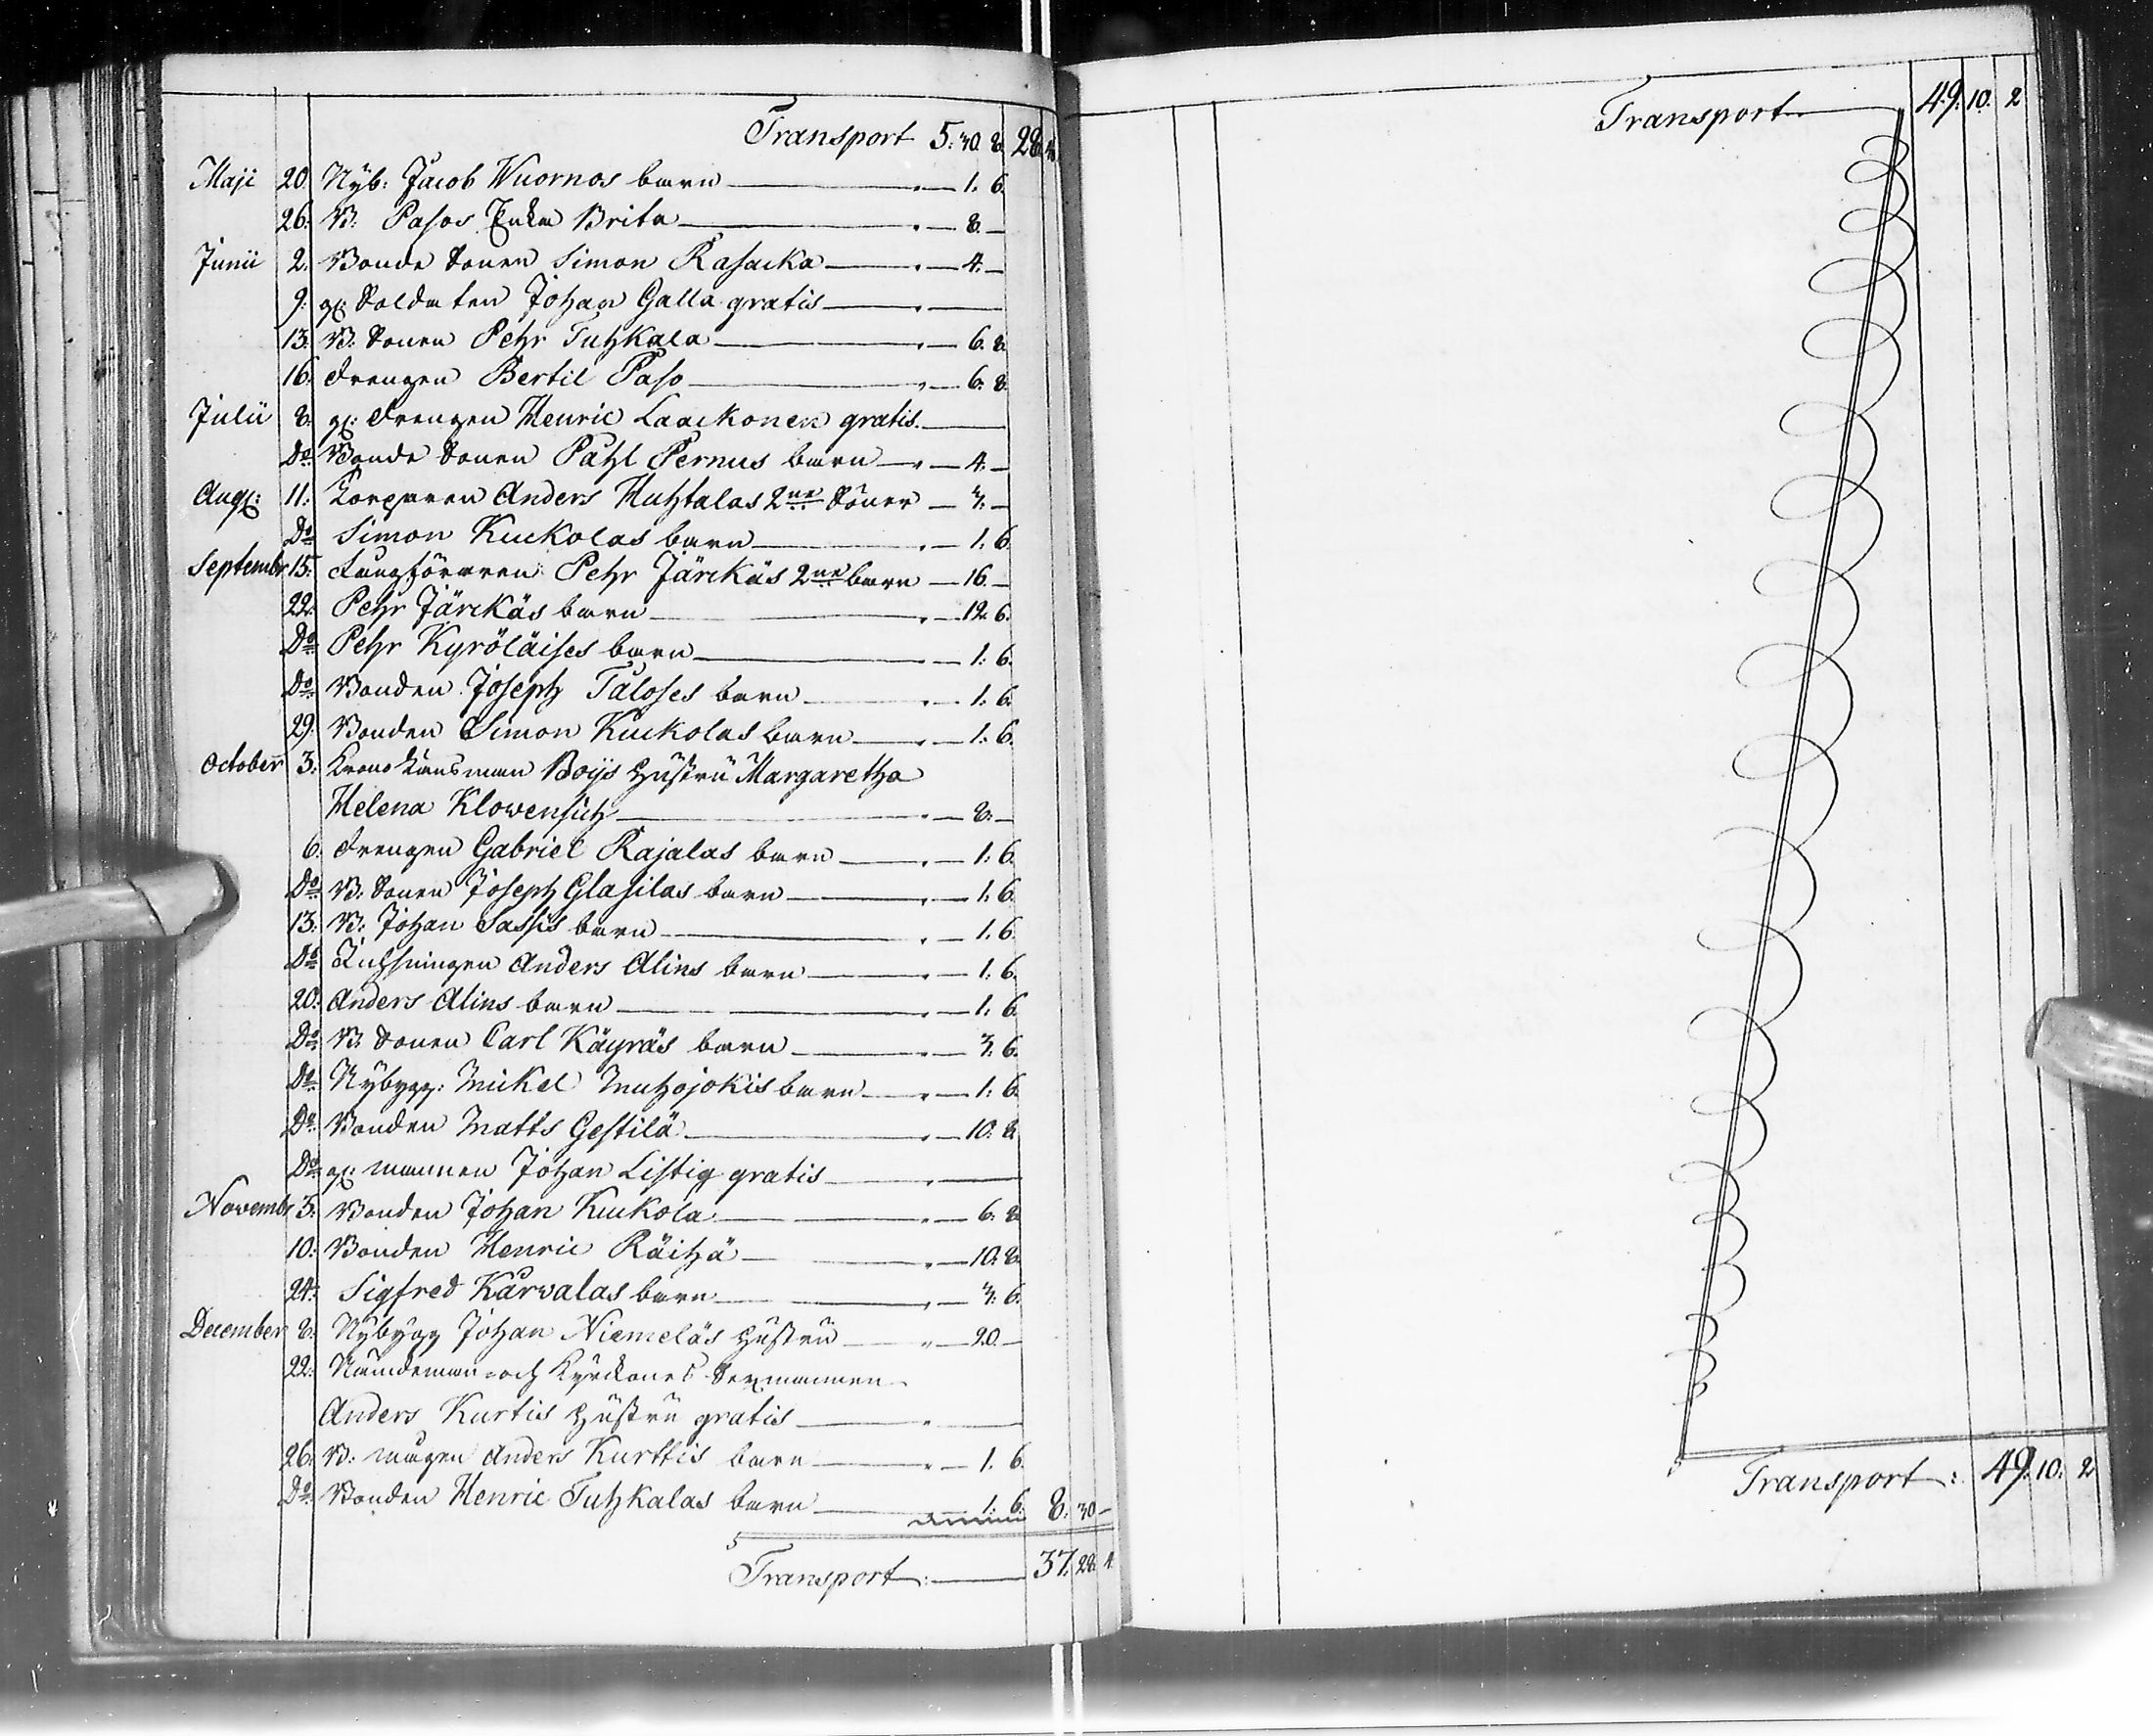 Transport 5: 30. 8. 28.
Maji 20. Nyb: Jacob Wuornos barn — 1. 6.
26. B: Pasos Enka Brita — 8. —
Junii 2. Bonde Sonen Simon Rasacka — 4. —
9. gl: Soldaten Johan Galla gratis —
13. B: Sonen Pehr Tuhkala — 6. 8.
16. Drengen Bertil Paso — 6. 8.
Julii 8. gl: Drengen Henric Laackonen gratis. —
Do Bonde Sonen Påhl Pernus barn — 4. —
Aug: 11. Torparen Anders Huhtalas 2ne Söner — 3. —
Do Simon Kuckolas barn — 1. 6.
Septembr 15. Pehr Järckäs 2ne barn — 16. —
22. Pehr Järckäs barn — 12. 6.
Do Pehr Kyröläises barn — 1: 6.
Do Bonden Joseph Taloses barn — 1: 6.
29. Bonden Simon Kuckolas barn — 1: 6.
October 3. Krono Länsman Boijs Hustru Margaretha
Helena Klowensich — 8. —
6. Drengen Gabriel Rajalas barn — 1: 6.
Do B: Sonen Joseph Glasilas barn — 1. 6.
13. B: Johan Sassis barn — 1. 6.
Do Anders Alins barn — 1: 6.
20. Anders Alins barn — 1. 6.
Do B: Sonen Carl Käyräs barn — 3. 6.
Do Nybygg: Mickel Muhojokis barn — 1: 6.
Do Bonden Matts Gestilä — 10. 8.
Do gl: mannen Johan Listig gratis —
Novembr 3. Bonden Johan Kuckola — 6. 8.
10. Bonden Henric Räihä — 10. 8.
24. Sigfred Karvalas barn — 3. 6.
December 8. Nybygg Johan Niemeläs Hustru — 20 —
22. Nämdeman och Kyrckones Sexmannen
Anders Kurtis Hustru gratis —
26. B: mågen Anders Kurttis barn — 1. 6.
Do Bonden Henric Tuhkalas barn — 1. 6. 8. 30 —
Transport: — 37. 28. 4.
Transport — 49. 10. 2
Transport: 49. 10. 2